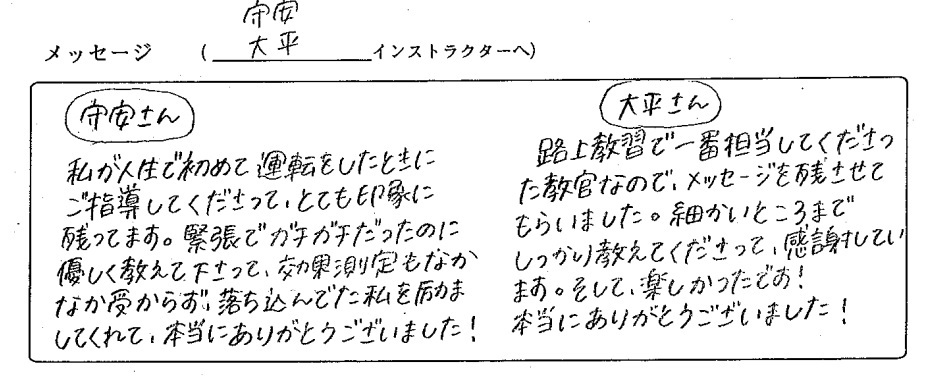 守安
メッセージ (大平インストラクターへ)
守安さん
私が人生で初めて運転をしたときに
ご指導してくださって、とても印象に
残ってます。緊張でガチガチだったのに
優しく教えて下さって、効果測定もなか
なか受からず、落ち込んでた私を励ま
してくれて、本当にありがとうございました!
大平さん
路上教習で一番担当してくださっ
た教官なので、メッセージを残させて
もらいました。細かいところまで
しっかり教えてくださって、感謝してい
ます。そして、楽しかったです!
本当にありがとうございました!